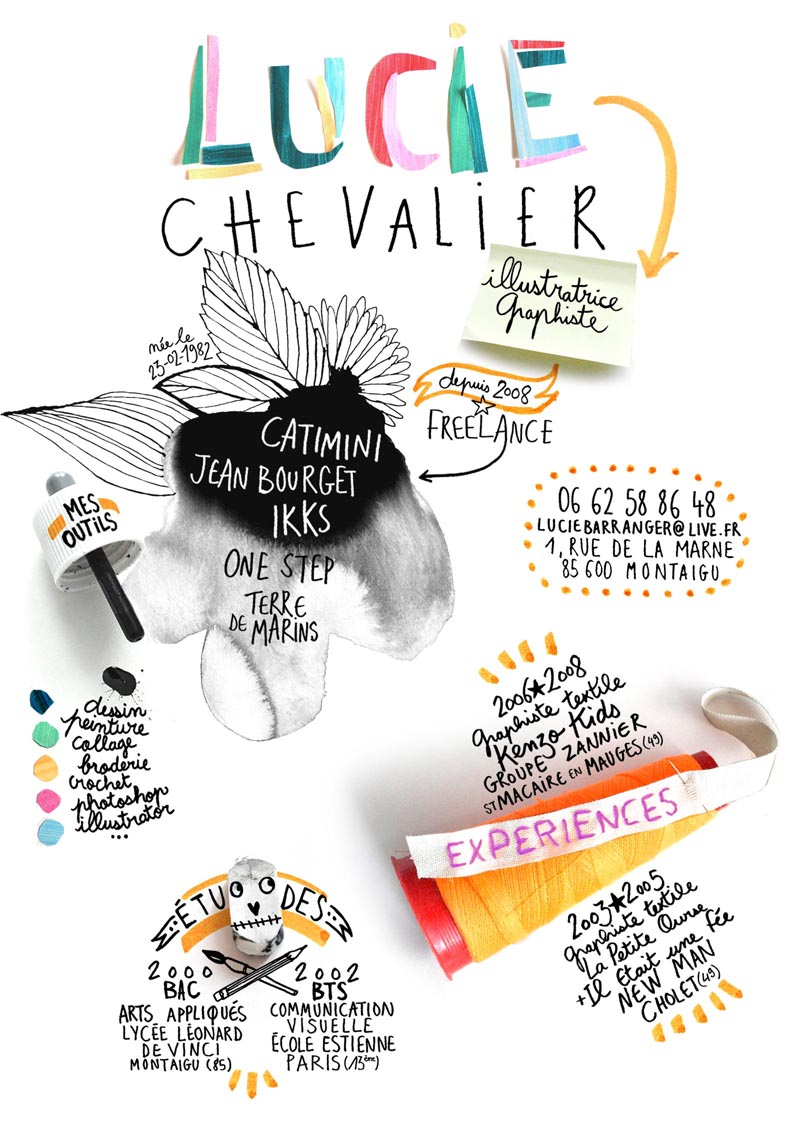 LUCIE
CHEVALIER
illustratrice
graphiste
née le
23-02-1982
depuis 2008
FREELANCE
CATIMINI
JEAN BOURGET
IKKS
ONE STEP
TERRE
DE MARINS
MES
OUTILS
06 62 58 86 48
LUCIEBARRANGER@LIVE.FR
1, RUE DE LA MARNE
85600 MONTAIGU
dessin
peinture
collage
broderie
crochet
photoshop
illustrator
...
2006★2008
graphiste textile
Kenzo Kids
GROUPE ZANNIER
ST MACAIRE EN MAUGES (49)
EXPERIENCES
2003★2005
graphiste textile
La Petite Ourse
+ Il Etait une Fée
NEW MAN
CHOLET (49)
ÉTUDES
2000
BAC
ARTS APPLIQUÉS
LYCÉE LÉONARD
DE VINCI
MONTAIGU (85)
2002
BTS
COMMUNICATION
VISUELLE
ÉCOLE ESTIENNE
PARIS (13ème)